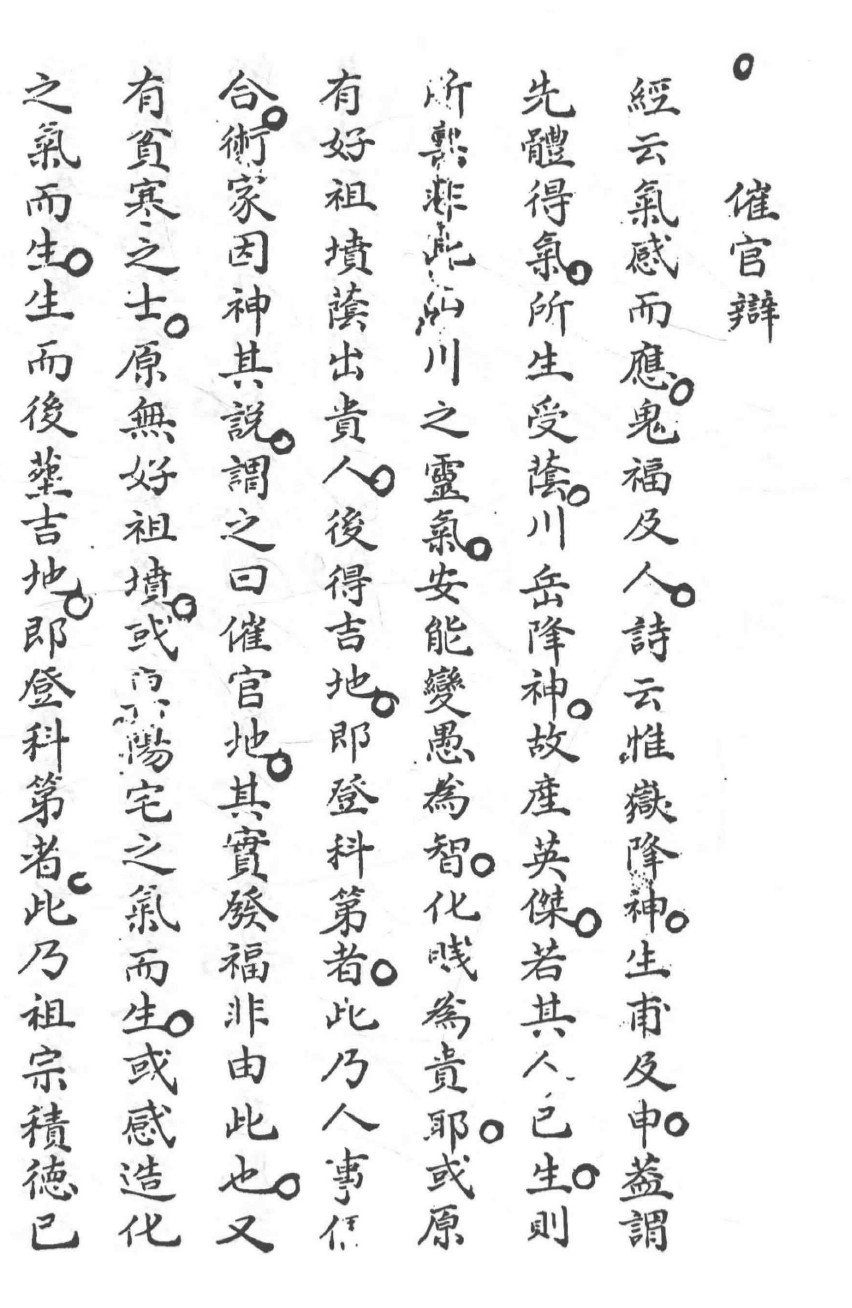 催官辯
經云氣感而應。鬼福及人。詩云惟嶽降神。生甫及申。葢謂
先體得氣。所生受蔭。川岳降神。故產英傑。若其人已生。則
所非此山川之靈氣。安能變愚為智。化賤為貴耶。或原
有好祖墳蔭出貴人。後得吉地。即登科第者。此乃人事
合。術家因神其説。謂之曰催官地。其實發福非由此也。又
有貧寒之士。原無好祖墳。或陽宅之氣而生。或感造化
之氣而生。生而後塟吉地。即登科第者。此乃祖宗積德已